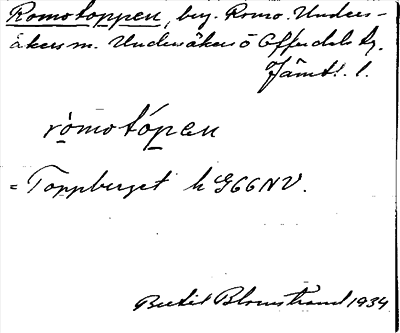 Romotoppen, by. Romo. Unders-
åkers sn. Undersåkers o Offerdals tg.
Jämtl. l.
ròmotópen
= Toppberget h G66NV.
Bertil Blomstrand 1934